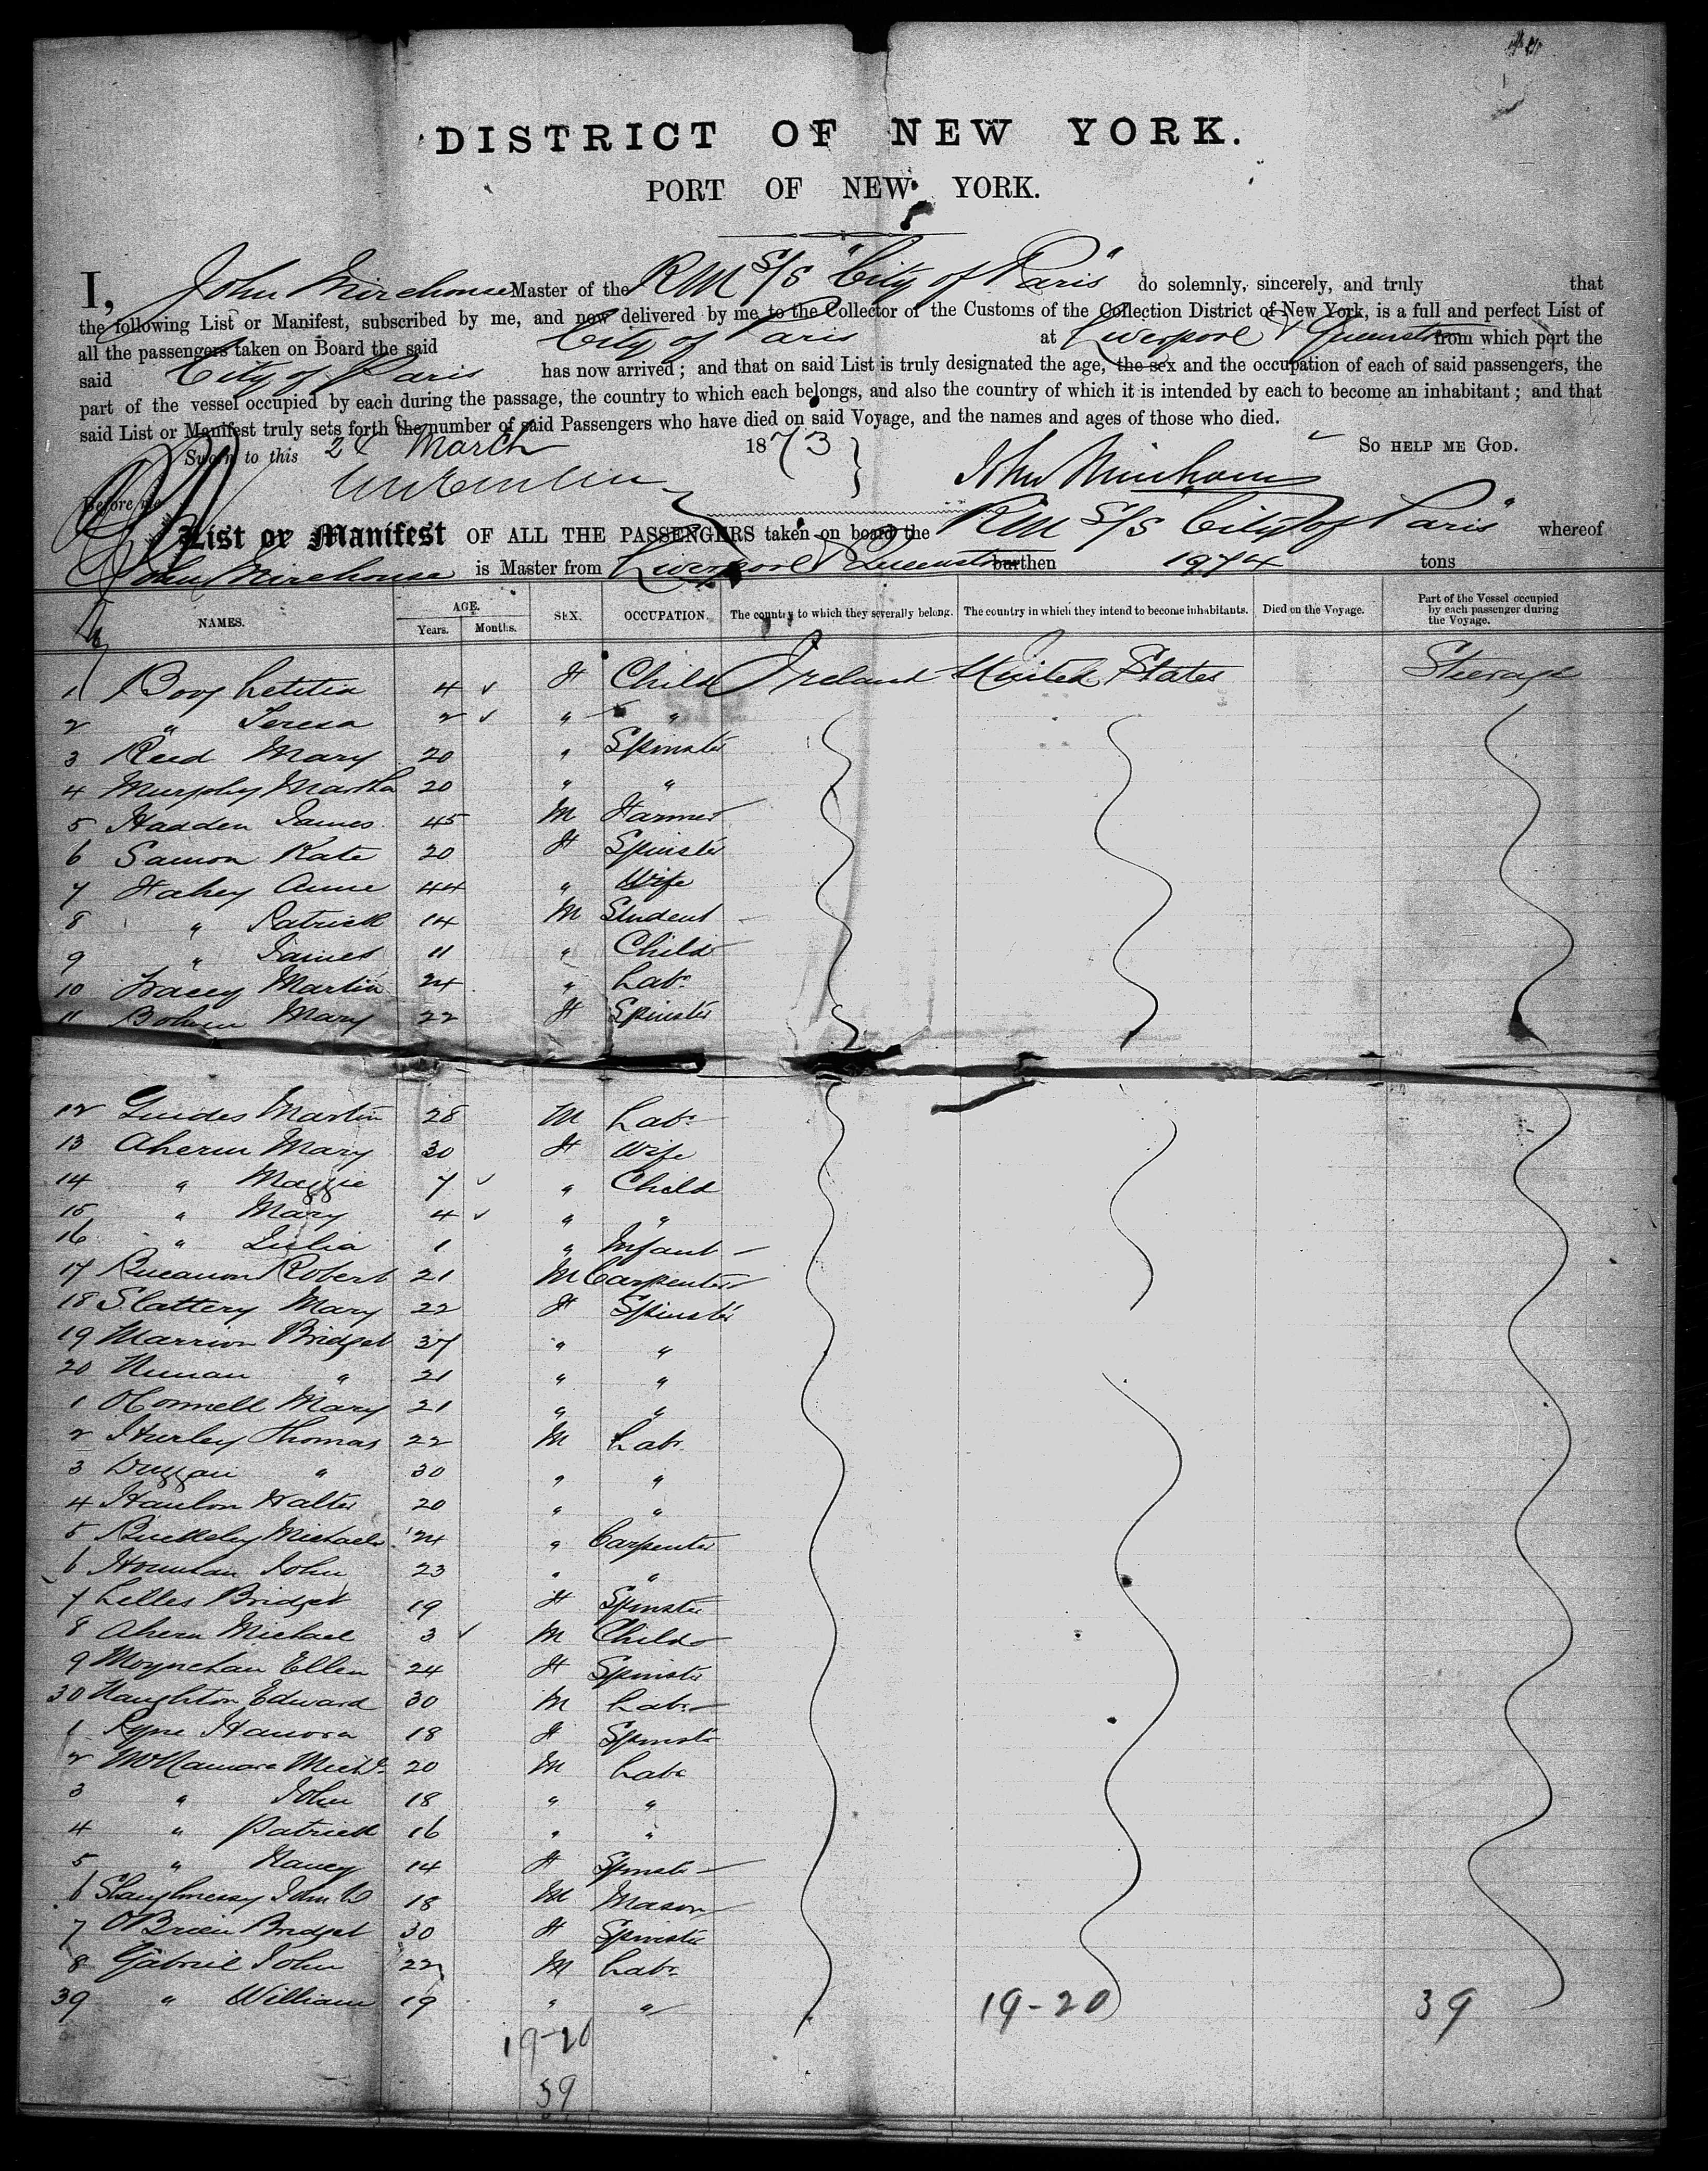 DISTRICT OF NEW YORK.
PORT OF NEW YORK.
I, John Mirehouse Master of the RM S/S "City of Paris" do solemnly, sincerely, and truly that
the following List or Manifest, subscribed by me, and now delivered by me to the Collector of the Customs of the Collection District of New York, is a full and perfect List of
all the passengers taken on Board the said City of Paris at Liverpool & Queenstown from which port the
said City of Paris has now arrived; and that on said List is truly designated the age, the sex and the occupation of each of said passengers, the
part of the vessel occupied by each during the passage, the country to which each belongs, and also the country of which it is intended by each to become an inhabitant; and that
said List or Manifest truly sets forth the number of said Passengers who have died on said Voyage, and the names and ages of those who died.
Sworn to this March 1873 SO HELP ME GOD.
Before me John Mirehouse
List or Manifest OF ALL THE PASSENGERS taken on board the RM S/S "City of Paris" whereof
John Mirehouse is Master from Liverpool & Queenstown burthen 1974 tons
NAMES. AGE. Years. Months. SEX. OCCUPATION. The country to which they severally belong. The country in which they intend to become inhabitants. Died on the Voyage. Part of the Vessel occupied by each passenger during the Voyage.
1 Letitia 4 F Child Ireland United States Steerage
2 " Teresa 2 " "
3 Reed Mary 20 " Spinster
4 Murphy Martha 20 " "
5 Hadden James 45 M Farmer
6 Samon Kate 20 F Spinster
7 Fahey Anne 44 " Wife
8 " Patrick 14 M Student
9 " James 11 " Child
10 Tracey Martin 24 " Labr
11 Mary 22 F Spinster
12 Martin 28 M Labr
13 Ahern Mary 30 F Wife
14 " Maggie 7 " Child
15 " Mary 4 " "
16 " Julia 1 " Infant
17 Robert 21 M Carpenter
18 Slattery Mary 22 F Spinster
19 Marrion Bridget 37 " "
20 Nunan " 21 " "
1 O'Connell Mary 21 " "
2 Hurley Thomas 22 M Labr
3 Duggan " 30 " "
4 Hanlon Walter 20 " "
5 Buckeley Michael 24 " Carpenter
6 John 23 " "
7 Lilles Bridget 19 F Spinster
8 Ahern Michael 3 M Child
9 Moynehan Ellen 24 F Spinster
30 Naughton Edward 30 M Labr
1 Ryne Hanora 18 F Spinster
2 McNamara Michl 20 M Labr
3 " John 18 " "
4 " Patrick 16 " "
5 " Nancy 14 F Spinster
6 Shaughnessy John 18 M Mason
7 O'Brien Bridget 30 F Spinster
8 Gabriel John 22 M Labr
39 " William 19 " "
19-20 19-20 39
39